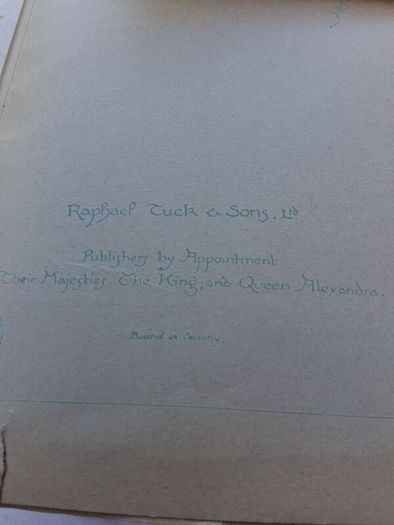 Raphael Tuck & Sons, Ltd.
Publishers by Appointment
Their Majesties The King, and Queen Alexandra.
Bound in Saxony